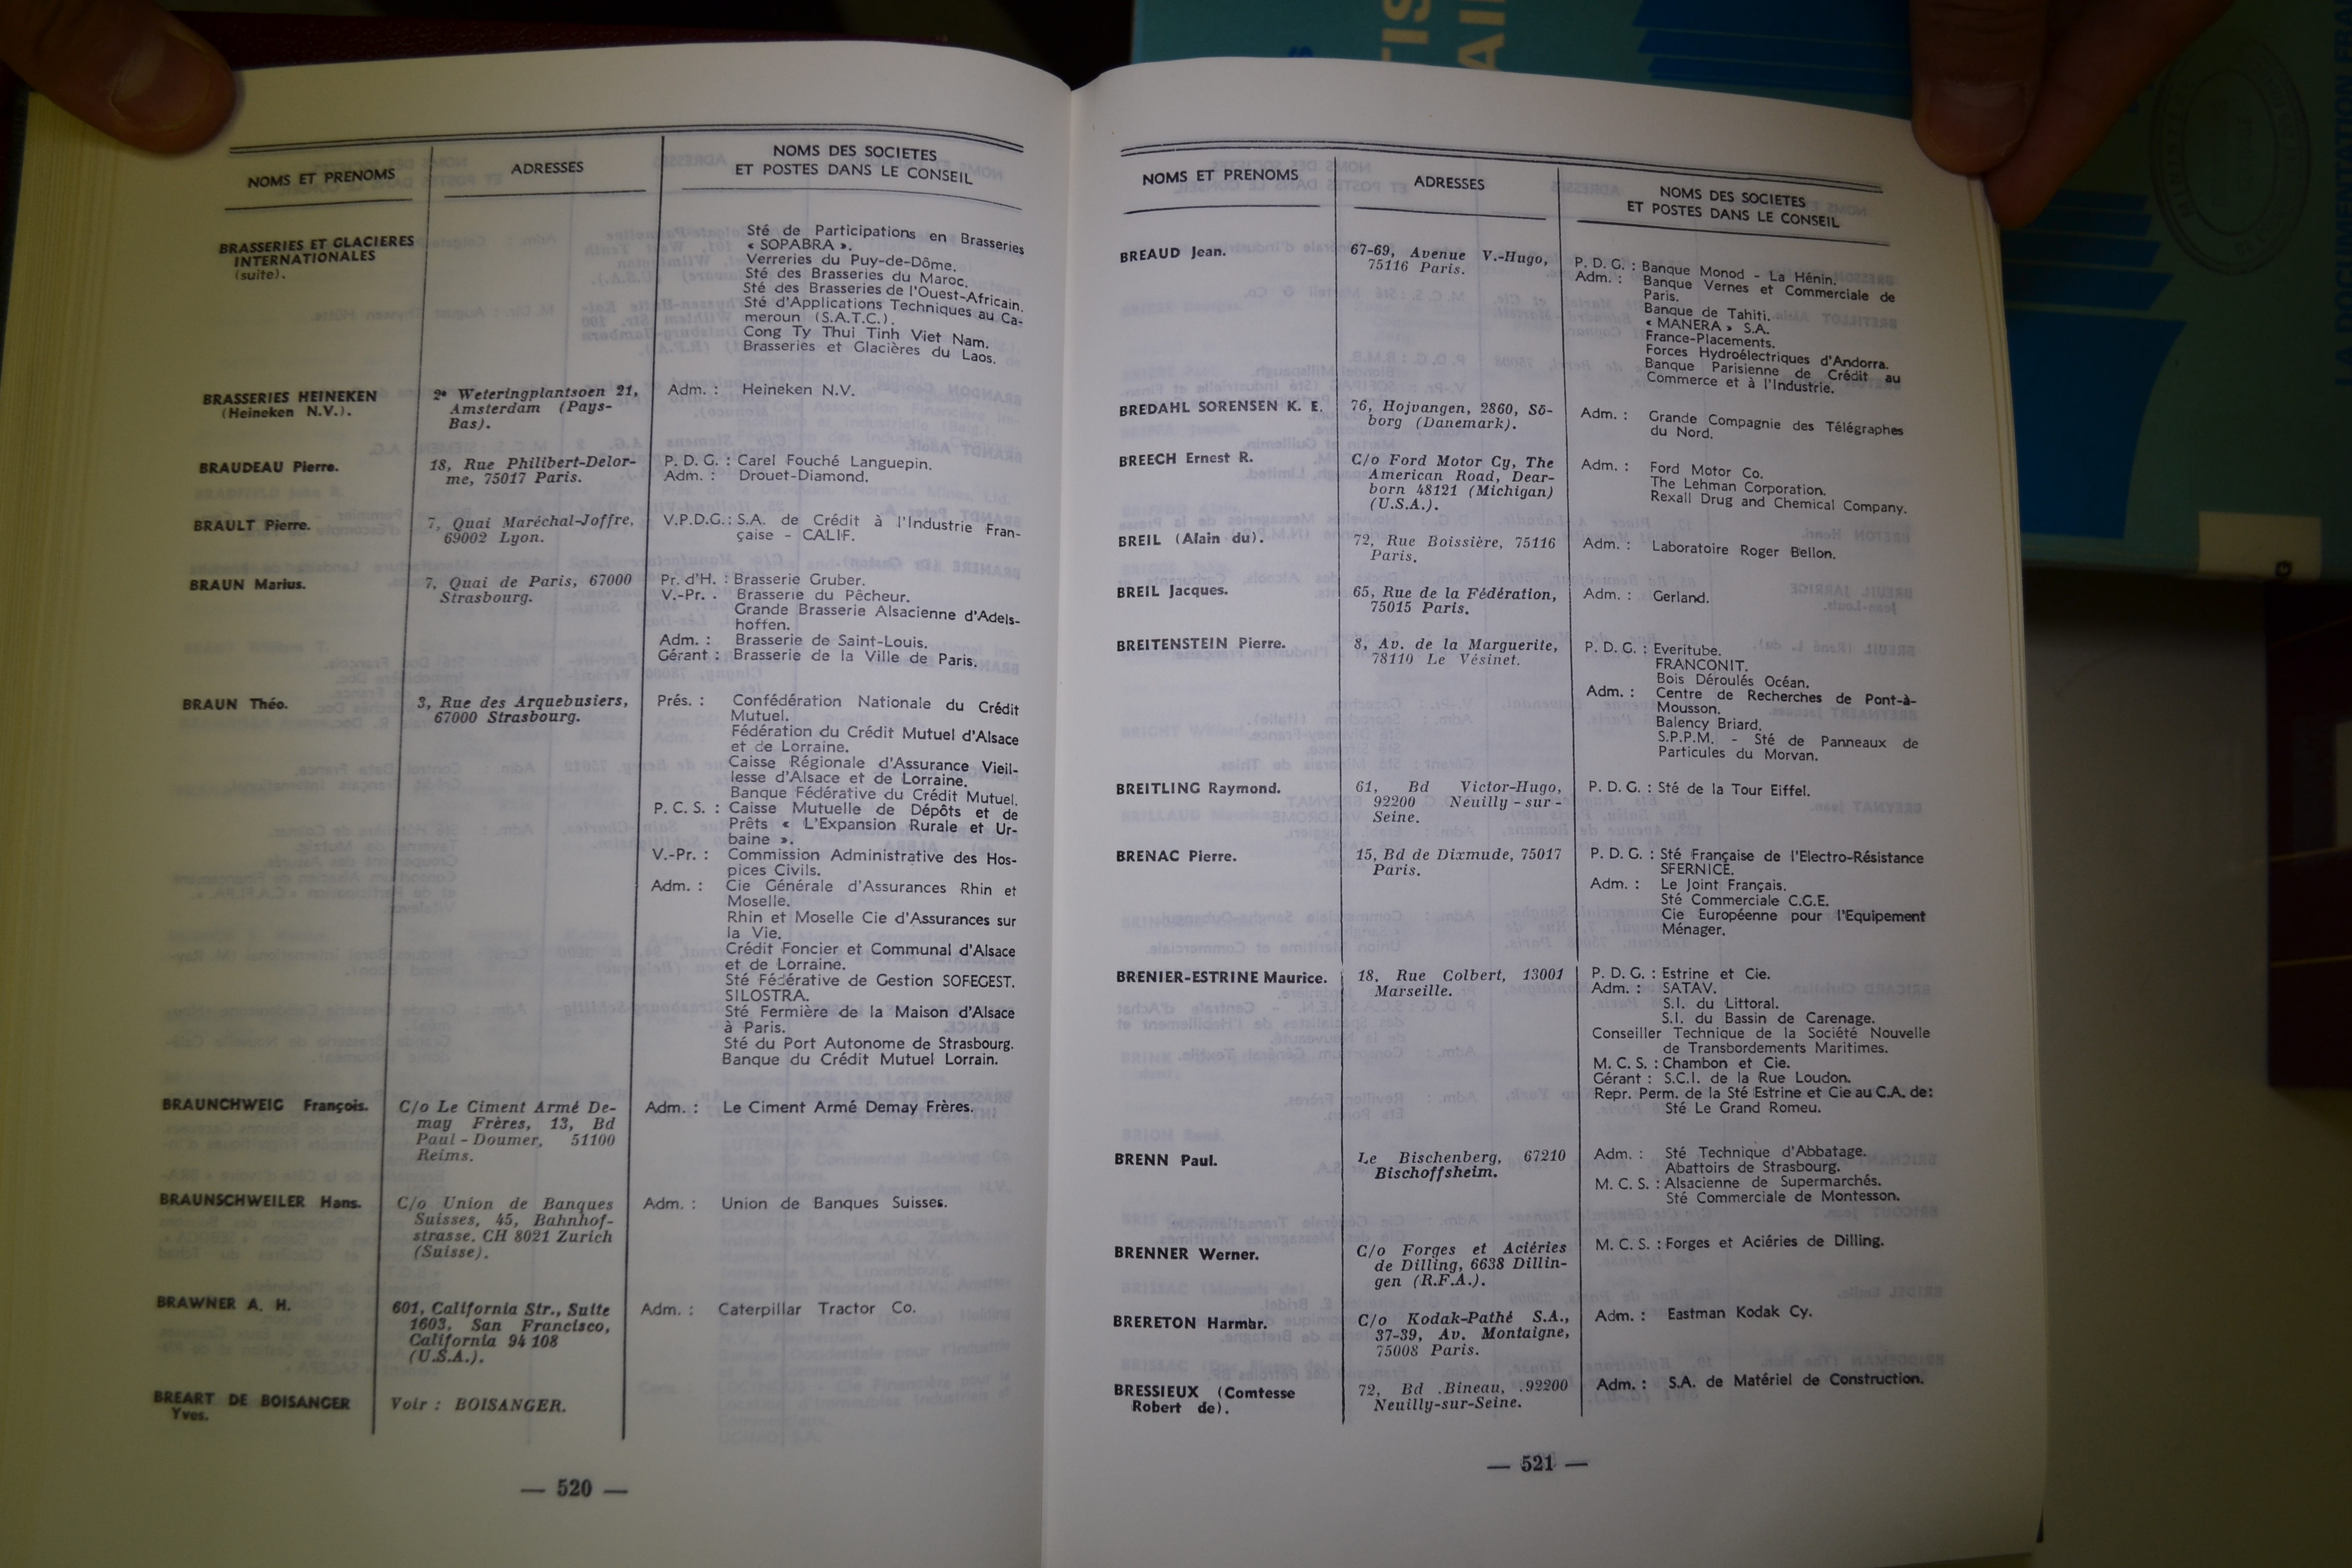 NOMS ET PRENOMS
ADRESSES
NOMS DES SOCIETES
ET POSTES DANS LE CONSEIL
BRASSERIES ET GLACIERES
INTERNATIONALES
(suite).
Sté de Participations en Brasseries
« SOPABRA ».
Verreries du Puy-de-Dôme.
Sté des Brasseries du Maroc.
Sté des Brasseries de l'Ouest-Africain.
Sté d'Applications Techniques au Ca-
meroun (S.A.T.C.).
Cong Ty Thui Tinh Viet Nam.
Brasseries et Glacières du Laos.
BRASSERIES HEINEKEN
(Heineken N.V.).
2e Weteringplantsoen 21,
Amsterdam (Pays-
Bas).
Adm. : Heineken N.V.
BRAUDEAU Pierre.
18, Rue Philibert-Delor-
me, 75017 Paris.
P. D. G. : Carel Fouché Languepin.
Adm. : Drouet-Diamond.
BRAULT Pierre.
7, Quai Maréchal-Joffre,
69002 Lyon.
V.P.D.G. : S.A. de Crédit à l'Industrie Fran-
çaise - CALIF.
BRAUN Marius.
7, Quai de Paris, 67000
Strasbourg.
Pr. d'H. : Brasserie Gruber.
V.-Pr. : Brasserie du Pêcheur.
Grande Brasserie Alsacienne d'Adels-
hoffen.
Adm. : Brasserie de Saint-Louis.
Gérant : Brasserie de la Ville de Paris.
BRAUN Théo.
3, Rue des Arquebusiers,
67000 Strasbourg.
Prés. : Confédération Nationale du Crédit
Mutuel.
Fédération du Crédit Mutuel d'Alsace
et de Lorraine.
Caisse Régionale d'Assurance Vieil-
lesse d'Alsace et de Lorraine.
Banque Fédérative du Crédit Mutuel.
P. C. S. : Caisse Mutuelle de Dépôts et de
Prêts « L'Expansion Rurale et Ur-
baine ».
V.-Pr. : Commission Administrative des Hos-
pices Civils.
Adm. : Cie Générale d'Assurances Rhin et
Moselle.
Rhin et Moselle Cie d'Assurances sur
la Vie.
Crédit Foncier et Communal d'Alsace
et de Lorraine.
Sté Fédérative de Gestion SOFEGEST.
SILOSTRA.
Sté Fermière de la Maison d'Alsace
à Paris.
Sté du Port Autonome de Strasbourg.
Banque du Crédit Mutuel Lorrain.
BRAUNCHWEIG François.
C/o Le Ciment Armé De-
may Frères, 13, Bd
Paul-Doumer, 51100
Reims.
Adm. : Le Ciment Armé Demay Frères.
BRAUNSCHWEILER Hans.
C/o Union de Banques
Suisses, 45, Bahnhof-
strasse. CH 8021 Zurich
(Suisse).
Adm. : Union de Banques Suisses.
BRAWNER A. H.
601, California Str., Suite
1603, San Francisco,
California 94 108
(U.S.A.).
Adm. : Caterpillar Tractor Co.
BREART DE BOISANGER
Yves.
Voir : BOISANGER.
— 520 —
NOMS ET PRENOMS
ADRESSES
NOMS DES SOCIETES
ET POSTES DANS LE CONSEIL
BREAUD Jean.
67-69, Avenue V.-Hugo,
75116 Paris.
P. D. G. : Banque Monod - La Hénin.
Adm. : Banque Vernes et Commerciale de
Paris.
Banque de Tahiti.
« MANERA » S.A.
France-Placements.
Forces Hydroélectriques d'Andorra.
Banque Parisienne de Crédit au
Commerce et à l'Industrie.
BREDAHL SORENSEN K. E.
76, Hojvangen, 2860, Sö-
borg (Danemark).
Adm. : Grande Compagnie des Télégraphes
du Nord.
BREECH Ernest R.
C/o Ford Motor Cy, The
American Road, Dear-
born 48121 (Michigan)
(U.S.A.).
Adm. : Ford Motor Co.
The Lehman Corporation.
Rexall Drug and Chemical Company.
BREIL (Alain du).
72, Rue Boissière, 75116
Paris.
Adm. : Laboratoire Roger Bellon.
BREIL Jacques.
65, Rue de la Fédération,
75015 Paris.
Adm. : Gerland.
BREITENSTEIN Pierre.
8, Av. de la Marguerite,
78110 Le Vésinet.
P. D. G. : Everitube.
FRANCONIT.
Bois Déroulés Océan.
Adm. : Centre de Recherches de Pont-à-
Mousson.
Balency Briard.
S.P.P.M. - Sté de Panneaux de
Particules du Morvan.
BREITLING Raymond.
61, Bd Victor-Hugo,
92200 Neuilly-sur-
Seine.
P. D. G. : Sté de la Tour Eiffel.
BRENAC Pierre.
15, Bd de Dixmude, 75017
Paris.
P. D. G. : Sté Française de l'Electro-Résistance
SFERNICE.
Adm. : Le Joint Français.
Sté Commerciale C.G.E.
Cie Européenne pour l'Equipement
Ménager.
BRENIER-ESTRINE Maurice.
18, Rue Colbert, 13001
Marseille.
P. D. G. : Estrine et Cie.
Adm. : SATAV.
S.I. du Littoral.
S.I. du Bassin de Carenage.
Conseiller Technique de la Société Nouvelle
de Transbordements Maritimes.
M. C. S. : Chambon et Cie.
Gérant : S.C.I. de la Rue Loudon.
Repr. Perm. de la Sté Estrine et Cie au C.A. de :
Sté Le Grand Romeu.
BRENN Paul.
Le Bischenberg, 67210
Bischoffsheim.
Adm. : Sté Technique d'Abbatage.
Abattoirs de Strasbourg.
M. C. S. : Alsacienne de Supermarchés.
Sté Commerciale de Montesson.
BRENNER Werner.
C/o Forges et Aciéries
de Dilling, 6638 Dillin-
gen (R.F.A.).
M. C. S. : Forges et Aciéries de Dilling.
BRERETON Harmar.
C/o Kodak-Pathé S.A.,
37-39, Av. Montaigne,
75008 Paris.
Adm. : Eastman Kodak Cy.
BRESSIEUX (Comtesse
Robert de).
72, Bd .Bineau, .92200
Neuilly-sur-Seine.
Adm. : S.A. de Matériel de Construction.
— 521 —